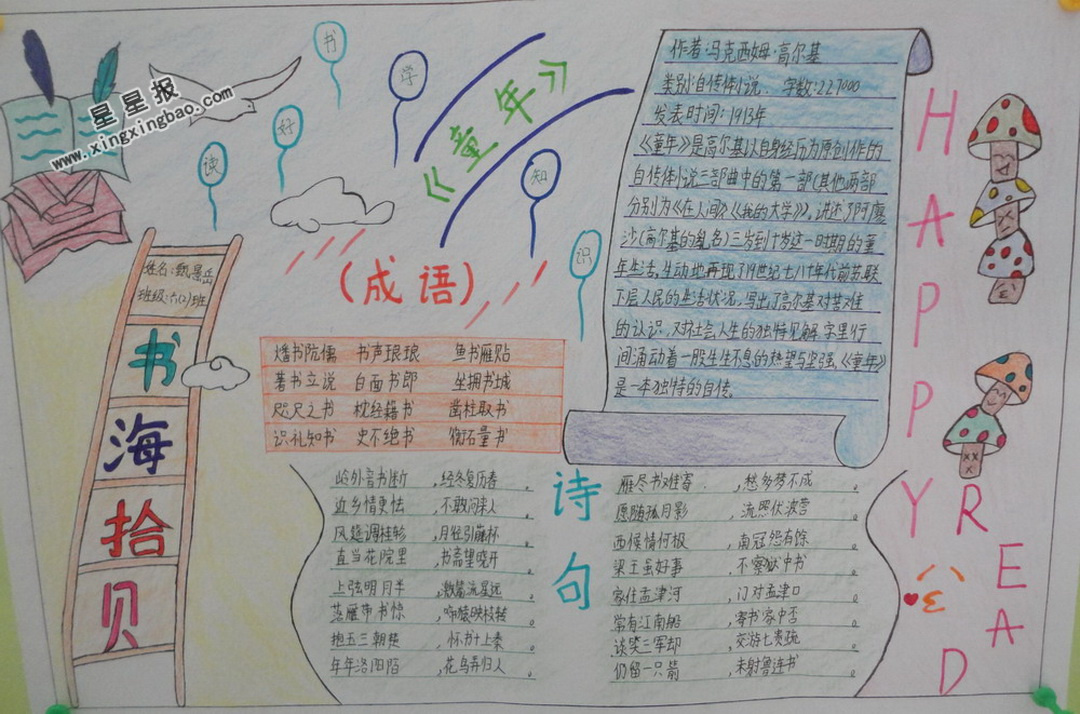 星星报
www.xingxingbao.com
读
好
书
学
知
识
《童年》
(成语)
班级:六(2)班
书
海
拾
贝
焚书阬儒 书声琅琅 鱼书雁贴
著书立说 白面书郎 坐拥书城
咫尺之书 枕经籍书 凿柱取书
识礼知书 史不绝书 衡石量书
作者:冯克西姆·高尔基
类别:自传体小说. 字数:227000
发表时间:1913年
《童年》是高尔基以自身经历为原创作的
自传体小说三部曲中的第一部(其他两部
分别为《在人间》《我的大学》)。讲述了阿廖
沙(高尔基的乳名)三岁到十岁这一时期的童
年生活,生动地再现了19世纪七八十年代前苏联
下层人民的生活状况,写出了高尔基对苦难
的认识,对社会人生的独特见解,字里行
间涌动着一股生生不息的热望与坚强,《童年》
是一本独特的自传。
诗句
岭外音书断,经冬复历春。
近乡情更怯,不敢问来人。
风筵调桂轸,月径引藤杯。
直当花院里,书斋望晓开。
上弦明月半,激箭流星远。
落雁带书惊,啼猿映枝转。
抱玉三朝楚,怀书十上秦。
年年洛阳陌,花鸟弄归人。
雁尽书难寄,愁多梦不成。
愿随孤月影,流照伏波营。
西候情何极,南冠怨有馀。
梁王虽好事,不察狱中书。
家住孟津河,门对孟津口。
常有江南船,寄书家中否。
谈笑三军却,交游七贵疏。
仍留一只箭,未射鲁连书。
HAPPY
READ